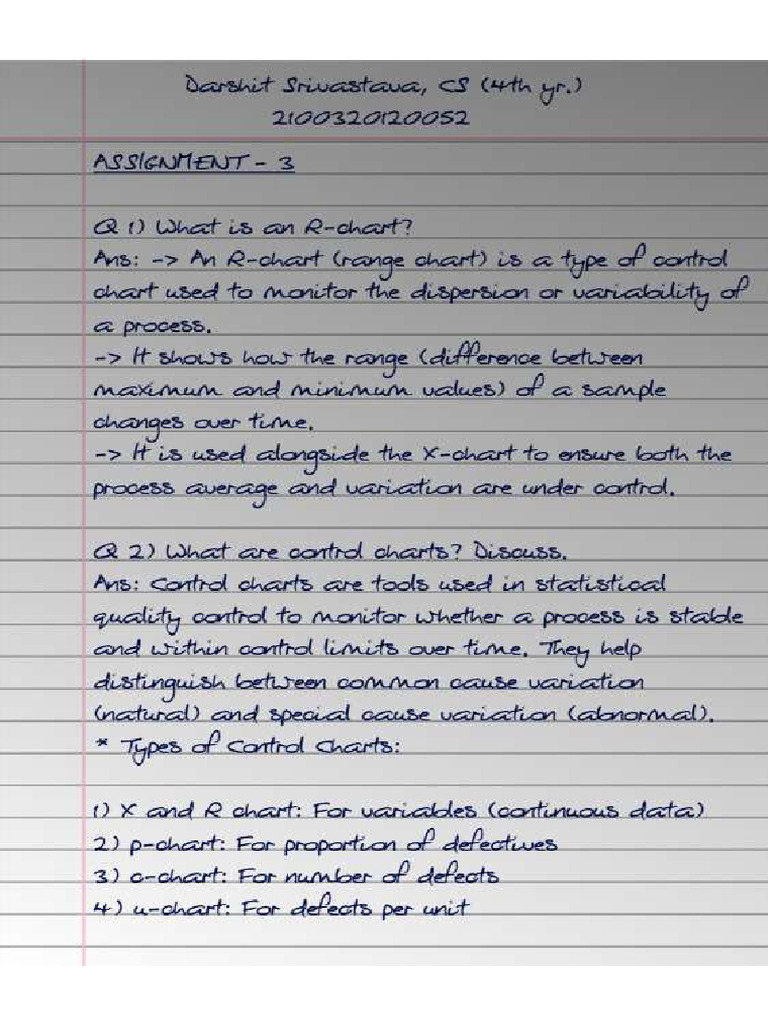 Darshit Srivastava, CS (4th yr.)
2100320120052
ASSIGNMENT - 3
Q 1) What is an R-chart?
Ans: -> An R-chart (range chart) is a type of control
chart used to monitor the dispersion or variability of
a process.
-> It shows how the range (difference between
maximum and minimum values) of a sample
changes over time.
-> It is used alongside the X-chart to ensure both the
process average and variation are under control.
Q 2) What are control charts? Discuss.
Ans: Control charts are tools used in statistical
quality control to monitor whether a process is stable
and within control limits over time. They help
distinguish between common cause variation
(natural) and special cause variation (abnormal).
* Types of Control Charts:
1) X and R chart: For variables (continuous data)
2) p-chart: For proportion of defectives
3) c-chart: For number of defects
4) u-chart: For defects per unit